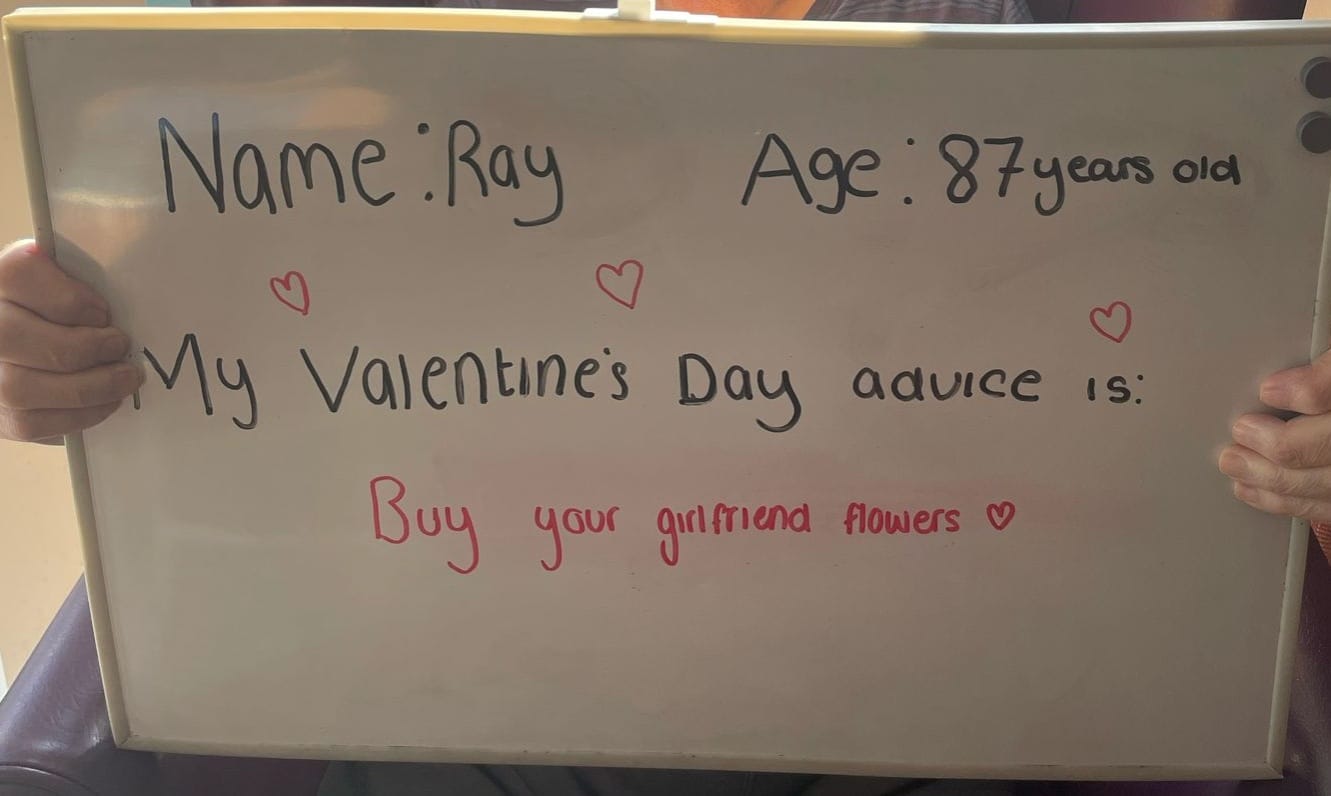 Name: Ray Age: 87 years old
My Valentine's Day advice is:
Buy your girlfriend flowers ♡